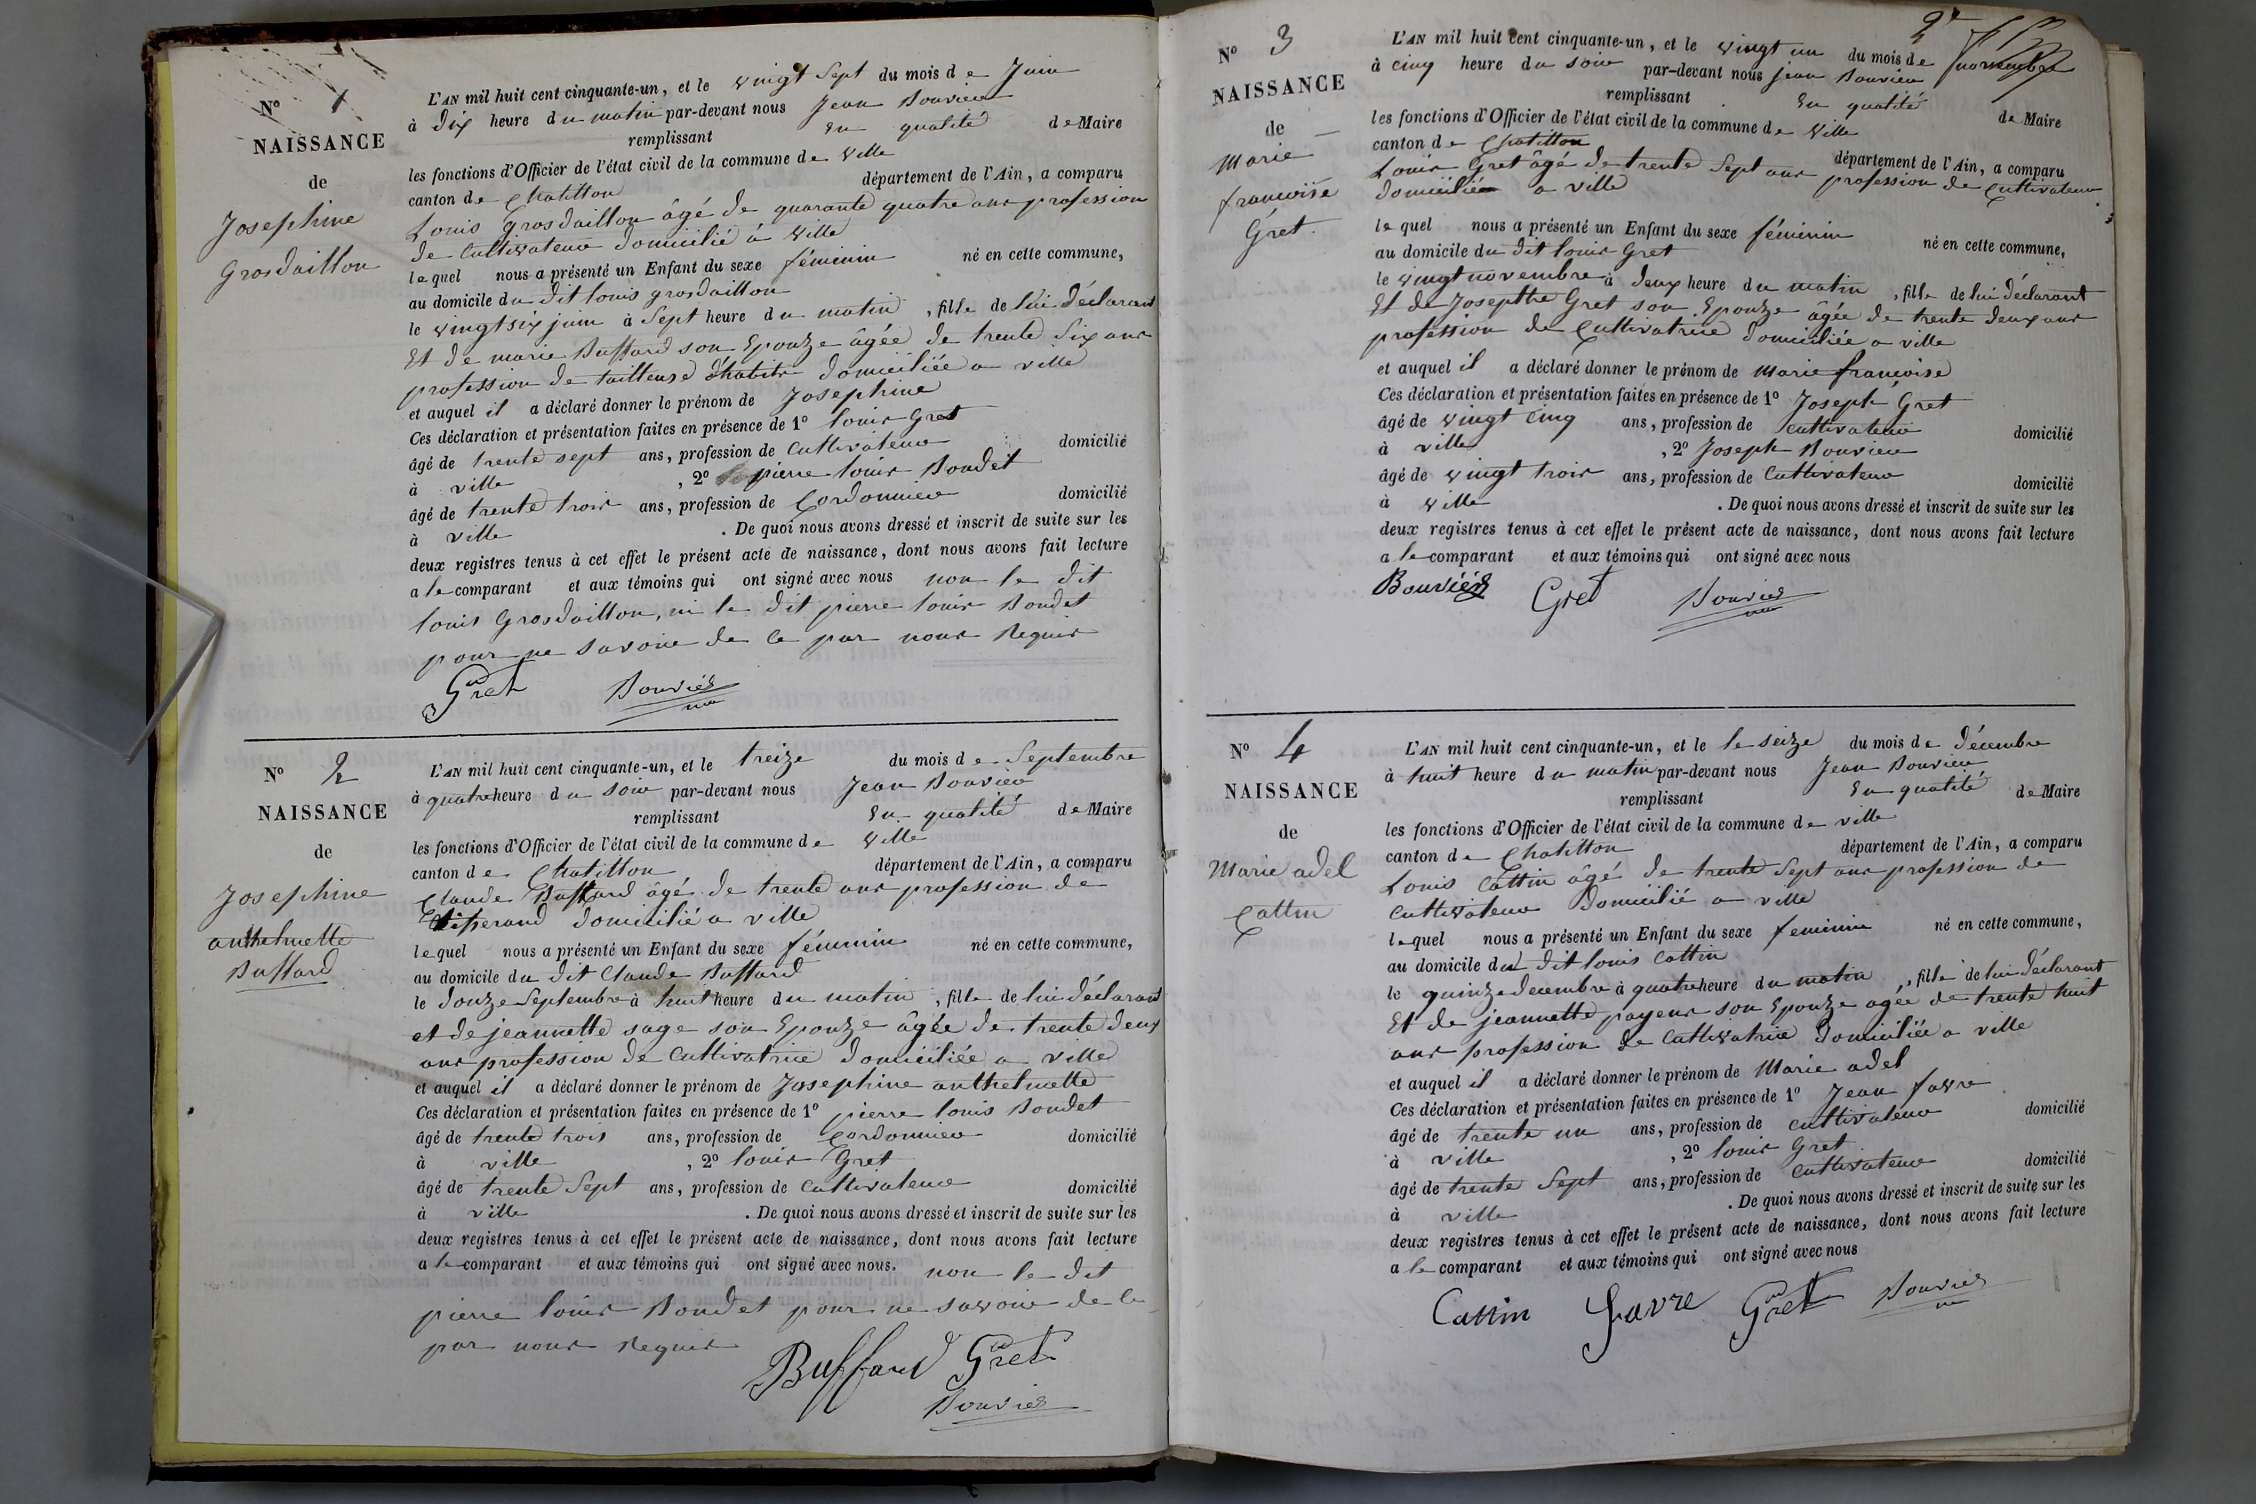 N° 1
NAISSANCE
de
Josephine
Grosdaillon
L'AN mil huit cent cinquante-un, et le vingt Sept du mois de Juin
à dix heure du matin par-devant nous Jean Bouvier
remplissant En qualité de Maire
les fonctions d'Officier de l'état civil de la commune de Ville
canton de Chatillon département de l'Ain, a comparu
Louis Grosdaillon âgé de quarante quatre ans profession
de Cultivateur domicilié à Ville
le quel nous a présenté un Enfant du sexe féminin né en cette commune,
au domicile du dit louis grosdaillon
le vingt six juin à Sept heure du matin, fille de lui déclarant
Et de marie Buffard son Epouze âgée de trente Six ans
profession de tailleuse d'habits domiciliée a ville
et auquel il a déclaré donner le prénom de Josephine
Ces déclaration et présentation faites en présence de 1° louis Gret
âgé de trente sept ans, profession de Cultivateur domicilié
à ville, 2° pierre louis Bondet
âgé de trente trois ans, profession de Cordonnier domicilié
à ville. De quoi nous avons dressé et inscrit de suite sur les
deux registres tenus à cet effet le présent acte de naissance, dont nous avons fait lecture
a le comparant et aux témoins qui ont signé avec nous non le dit
louis Grosdaillon, ni le dit pierre louis Bondet
pour ne savoir de ce par nous Requis
Gret Bouvier
N° 2
NAISSANCE
de
Josephine
anthelmette
Buffard
L'AN mil huit cent cinquante-un, et le treize du mois de Septembre
à quatre heure du soir par-devant nous Jean Bouvier
remplissant En qualité de Maire
les fonctions d'Officier de l'état civil de la commune de Ville
canton de Chatillon département de l'Ain, a comparu
Claude Buffard âgé de trente ans profession de
tisserand domicilié a ville
le quel nous a présenté un Enfant du sexe féminin né en cette commune,
au domicile du dit Claude Buffard
le douze Septembre à huit heure du matin, fille de lui déclarant
et de jeannette sage son Epouze âgée de trente deux
ans profession de Cultivatrice domiciliée a ville
et auquel il a déclaré donner le prénom de Josephine anthelmette
Ces déclaration et présentation faites en présence de 1° pierre louis Bondet
âgé de trente trois ans, profession de Cordonnier domicilié
à ville, 2° louis Gret
âgé de trente Sept ans, profession de Cultivateur domicilié
à ville. De quoi nous avons dressé et inscrit de suite sur les
deux registres tenus à cet effet le présent acte de naissance, dont nous avons fait lecture
a le comparant et aux témoins qui ont signé avec nous. non le dit
pierre louis Bondet pour ne savoir de ce
par nous Requis
Buffard Gret
Bouvier
N° 3
NAISSANCE
de
Marie
francoise
Gret
L'AN mil huit cent cinquante-un, et le vingt un du mois de novembre
à cinq heure du soir par-devant nous jean Bouvier
remplissant En qualité de Maire
les fonctions d'Officier de l'état civil de la commune de Ville
canton de Chatillon département de l'Ain, a comparu
Louis Gret âgé de trente Sept ans profession de Cultivateur
domicilié a ville
le quel nous a présenté un Enfant du sexe féminin né en cette commune,
au domicile du dit louis Gret
le vingt novembre à deux heure du matin, fille de lui déclarant
Et de Josepthe Gret son Epouze âgée de trente deux ans
profession de Cultivatrice domiciliée a ville
et auquel il a déclaré donner le prénom de Marie francoise
Ces déclaration et présentation faites en présence de 1° Joseph Gret
âgé de vingt cinq ans, profession de cultivateur domicilié
à ville, 2° Joseph Bouvier
âgé de vingt trois ans, profession de Cultivateur domicilié
à ville. De quoi nous avons dressé et inscrit de suite sur les
deux registres tenus à cet effet le présent acte de naissance, dont nous avons fait lecture
a le comparant et aux témoins qui ont signé avec nous
Bouvier Gret Bouvier
N° 4
NAISSANCE
de
Marie adel
Cattin
L'AN mil huit cent cinquante-un, et le le seize du mois de décembre
à huit heure du matin par-devant nous Jean Bouvier
remplissant En qualité de Maire
les fonctions d'Officier de l'état civil de la commune de ville
canton de Chatillon département de l'Ain, a comparu
Louis Cattin âgé de trente Sept ans profession de
cultivateur Domicilié a ville
le quel nous a présenté un Enfant du sexe feminin né en cette commune,
au domicile du dit louis Cattin
le quinze decembre à quatre heure du matin, fille de lui déclarant
Et de jeannette payeur son Epouze agée de trente huit
ans profession de Cultivatrice Domiciliée a ville
et auquel il a déclaré donner le prénom de Marie adel
Ces déclaration et présentation faites en présence de 1° Jean favre
âgé de trente un ans, profession de cultivateur domicilié
à ville, 2° louis Gret
âgé de trente Sept ans, profession de Cultivateur domicilié
à ville. De quoi nous avons dressé et inscrit de suite sur les
deux registres tenus à cet effet le présent acte de naissance, dont nous avons fait lecture
a le comparant et aux témoins qui ont signé avec nous
Cattin favre Gret Bouvier